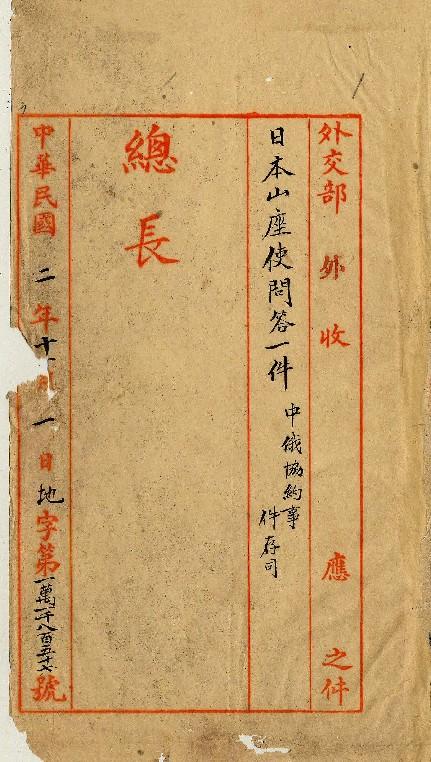 外交部 外 收 應 之件
日本山座使問答一件
中俄協約事
件存司
總長
中華民國 二 年 十 月 一 日 地 字第 一萬一千八百五十六 號